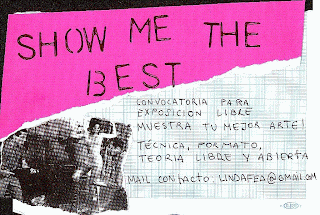 SHOW ME THE
BEST
CONVOCATORIA PARA
EXPOSICION LIBRE
MUESTRA TU MEJOR ARTE!
TÉCNICA, FORMATO,
TEORIA LIBRE Y ABIERTA
MAIL CONTACTO: LINDAFEA@GMAIL.COM